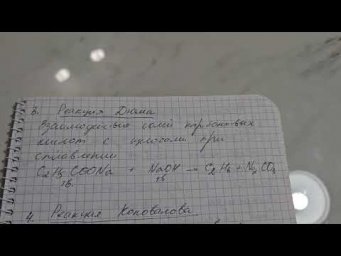 3. Реакция Дюма
Взаимодействие солей карбоновых
кислот с щелочами при
сплавлении
C2H5COONa + NaOH → C2H6 + Na2CO3
тв. тв
4. Реакция Коновалова